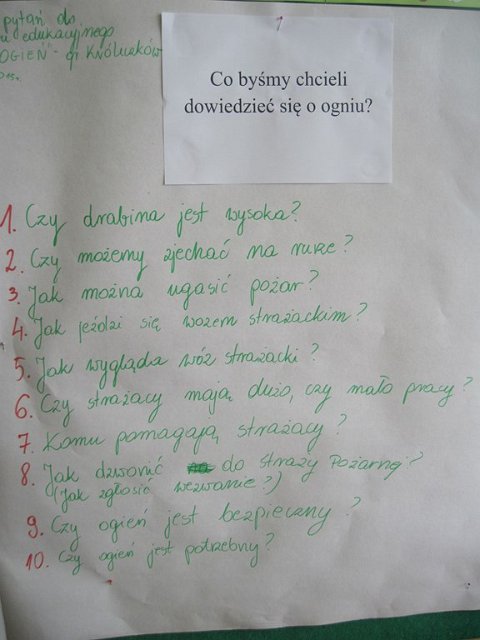 pytań do
edukacyjnego
OGIEŃ" - gr Króliczków
Co byśmy chcieli
dowiedzieć się o ogniu?
1. Czy drabina jest wysoka?
2. Czy możemy zjechać na rurze?
3. Jak można ugasić pożar?
4. Jak jeździ się wozem strażackim?
5. Jak wygląda wóz strażacki?
6. Czy strażacy mają dużo, czy mało pracy?
7. Komu pomagają strażacy?
8. Jak dzwonić do straży Pożarnej?
(Jak zgłosić wezwanie?)
9. Czy ogień jest bezpieczny?
10. Czy ogień jest potrzebny?